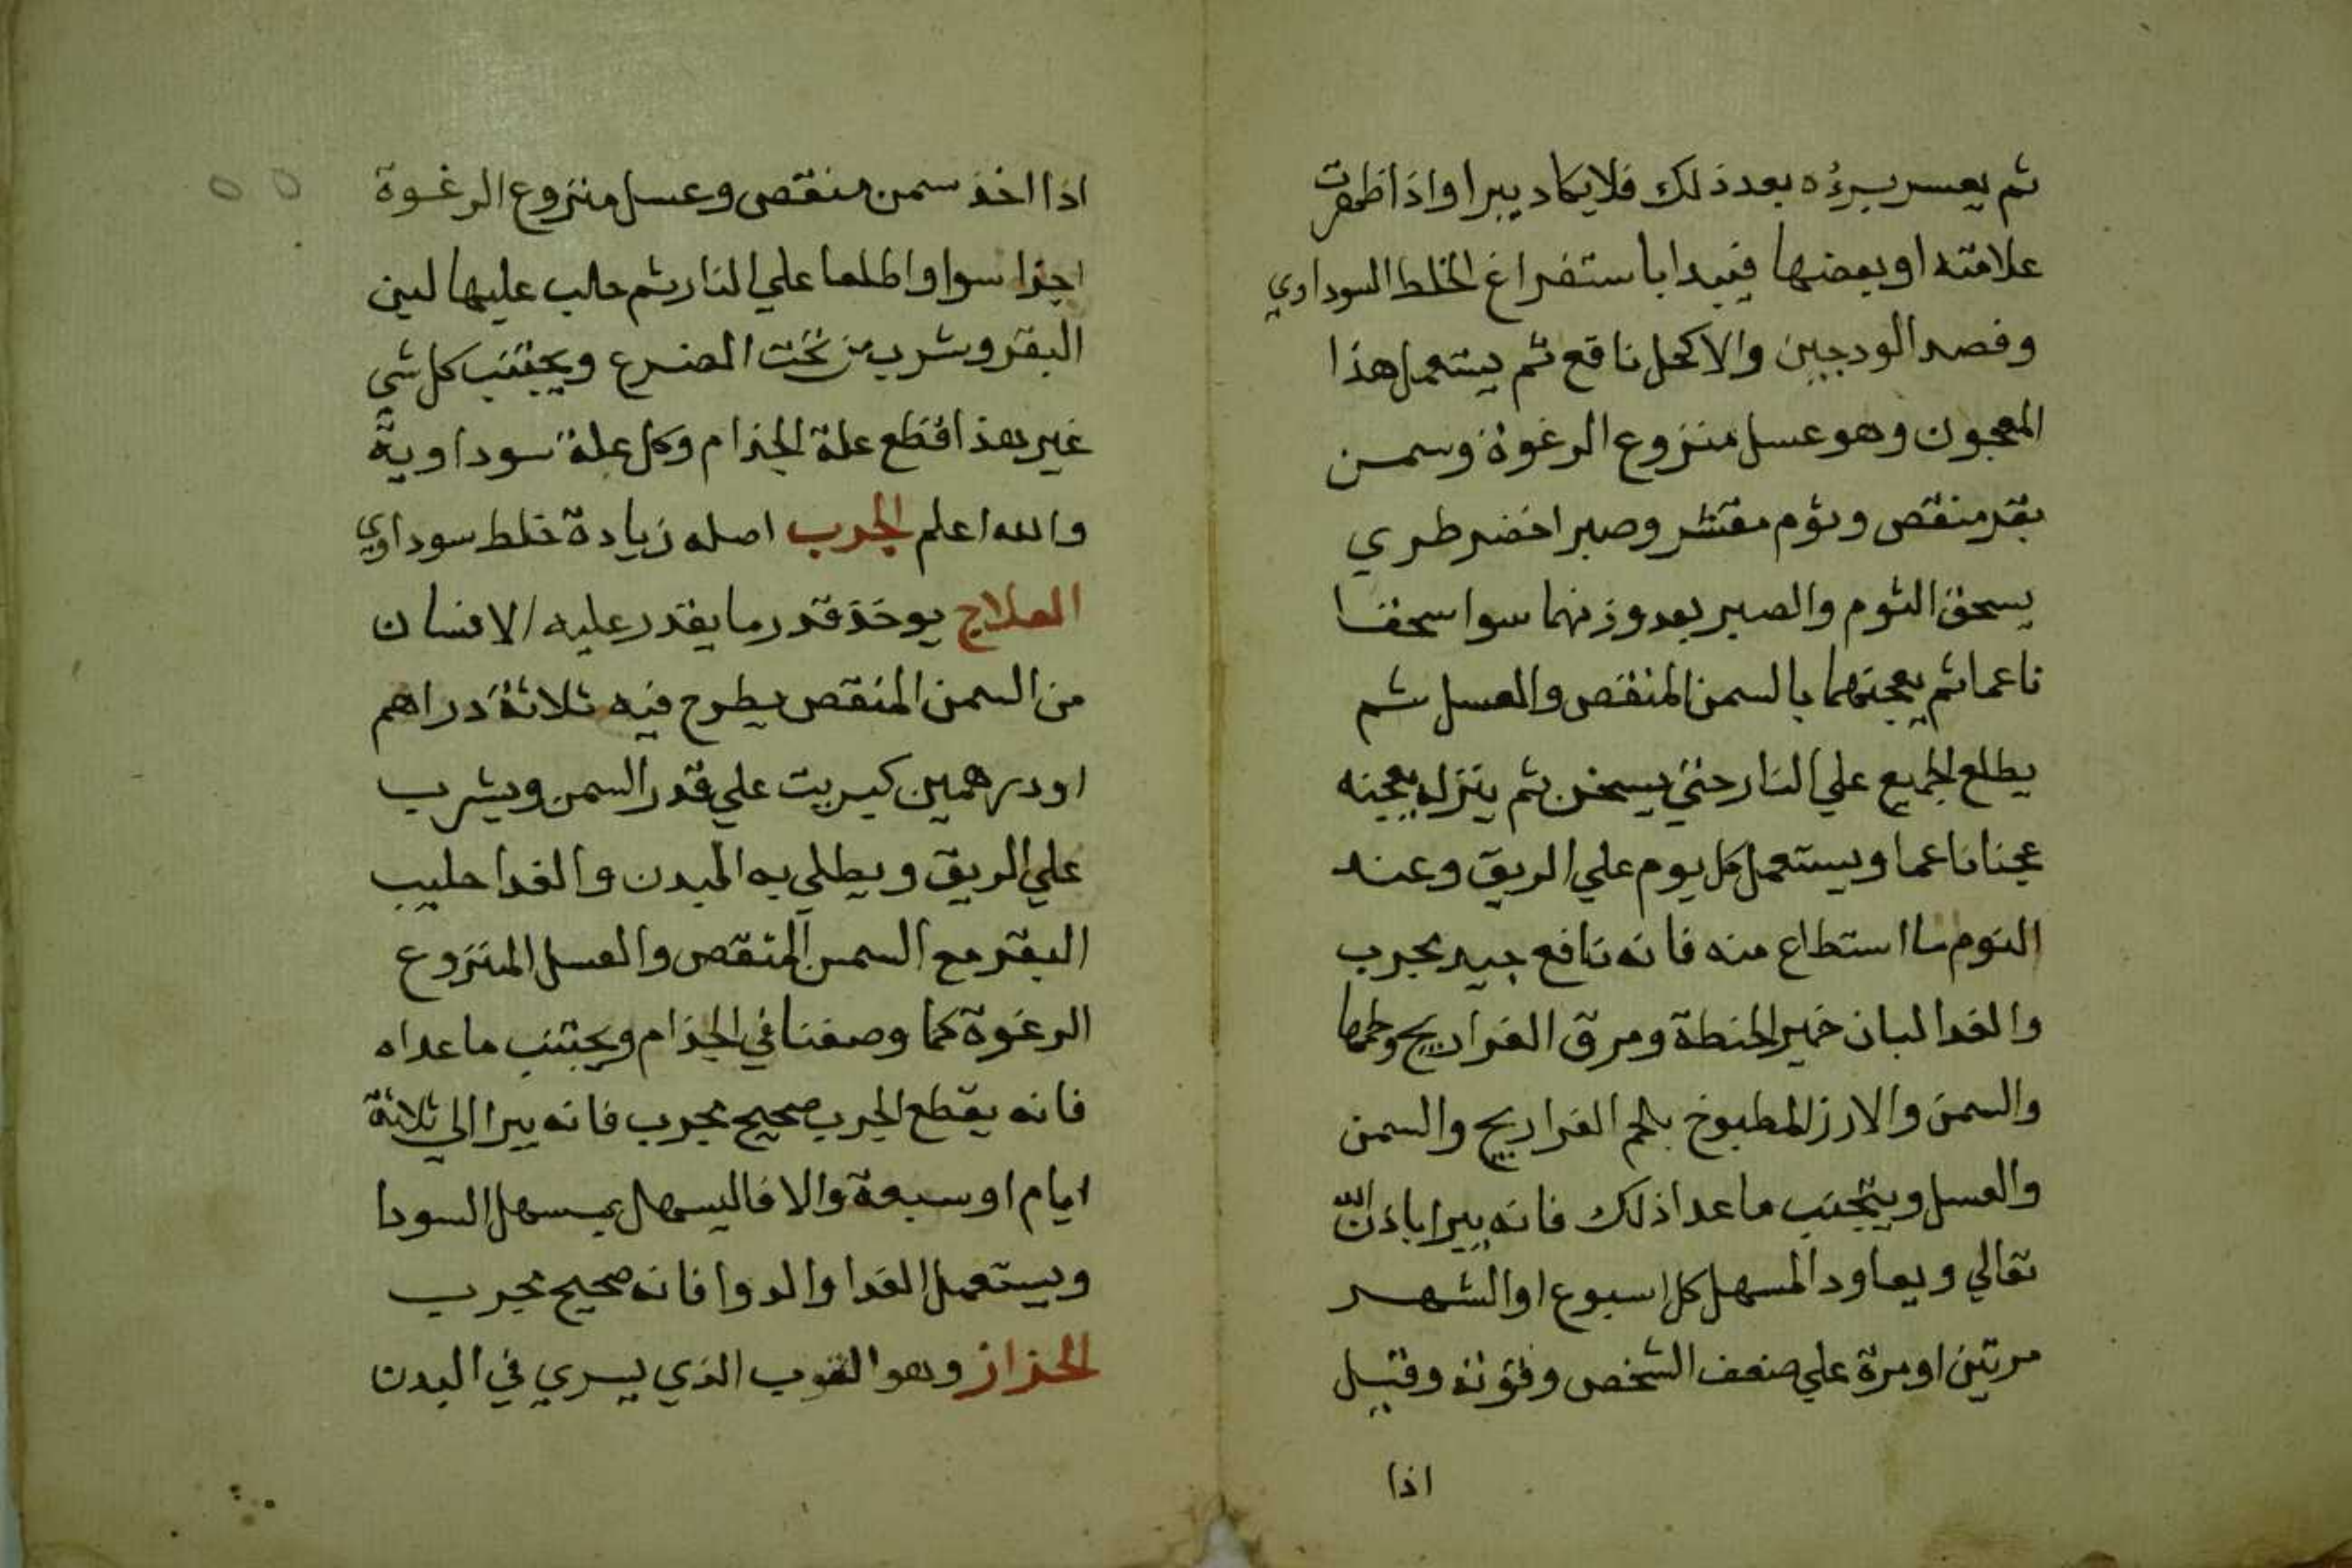 ثم يعسر برؤه بعد ذلك فلا يكاد يبرا واذا ظهرت
علامته او بعضها فيبدا باستفراغ الخلط السوداوي
وفصد الودجين والاكحل نافع ثم يستعمل هذا
المعجون وهو عسل منزوع الرغوة وسمن
بقر منقص وثوم مقشر وصبر اخضر طري
يسحق الثوم والصبر بعد وزنهما سوا سحقا
ناعما ثم يعجنهما بالسمن المنقص والعسل ثم
يطلع الجميع علي النار حتي يسخن ثم ينزله يعجنه
عجنا ناعما ويستعمل كل يوم علي الريق وعند
النوم ما استطاع منه فانه نافع جيد مجرب
والغدا لبان خمير الحنطة ومرق الفراريج ولحمها
والسمن والارز المطبوخ بلحم الفراريج والسمن
والعسل ويتجنب ما عدا ذلك فانه يبرا باذن الله
تعالي ويعاود المسهل كل اسبوع او الشهر
مرتين او مرة علي ضعف الشخص وقوته وقيل
اذا
اذا اخذ سمن منقص وعسل منزوع الرغوة
اجزا سوا واطلعا علي النار ثم حلب عليها لبن
البقر وشرب من تحت الضرع ويجتنب كل شي
غير هذا قطع علة الجذام وكل علة سوداوية
والله اعلم الجرب اصله زيادة خلط سوداوي
العلاج يوخذ قدر ما يقدر عليه الانسان
من السمن المنقص يطرح فيه ثلاثة دراهم
او درهمين كبريت علي قدر السمن ويشرب
علي الريق ويطلي به البدن والغدا حليب
البقر مع السمن المنقص والعسل المنزوع
الرغوة كما وصفنا في الجذام ويجتنب ما عداه
فانه يقطع الجرب صحيح مجرب فانه يبرا الي ثلاثة
ايام او سبعة والا فاليسهل بمسهل السودا
ويستعمل الغدا والدوا فانه صحيح مجرب
الحزاز وهو القوب الذي يسري في البدن